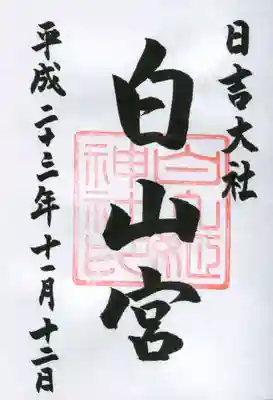 日吉大社
白山宮
平成二十三年十一月十二日
白山姫
神社印